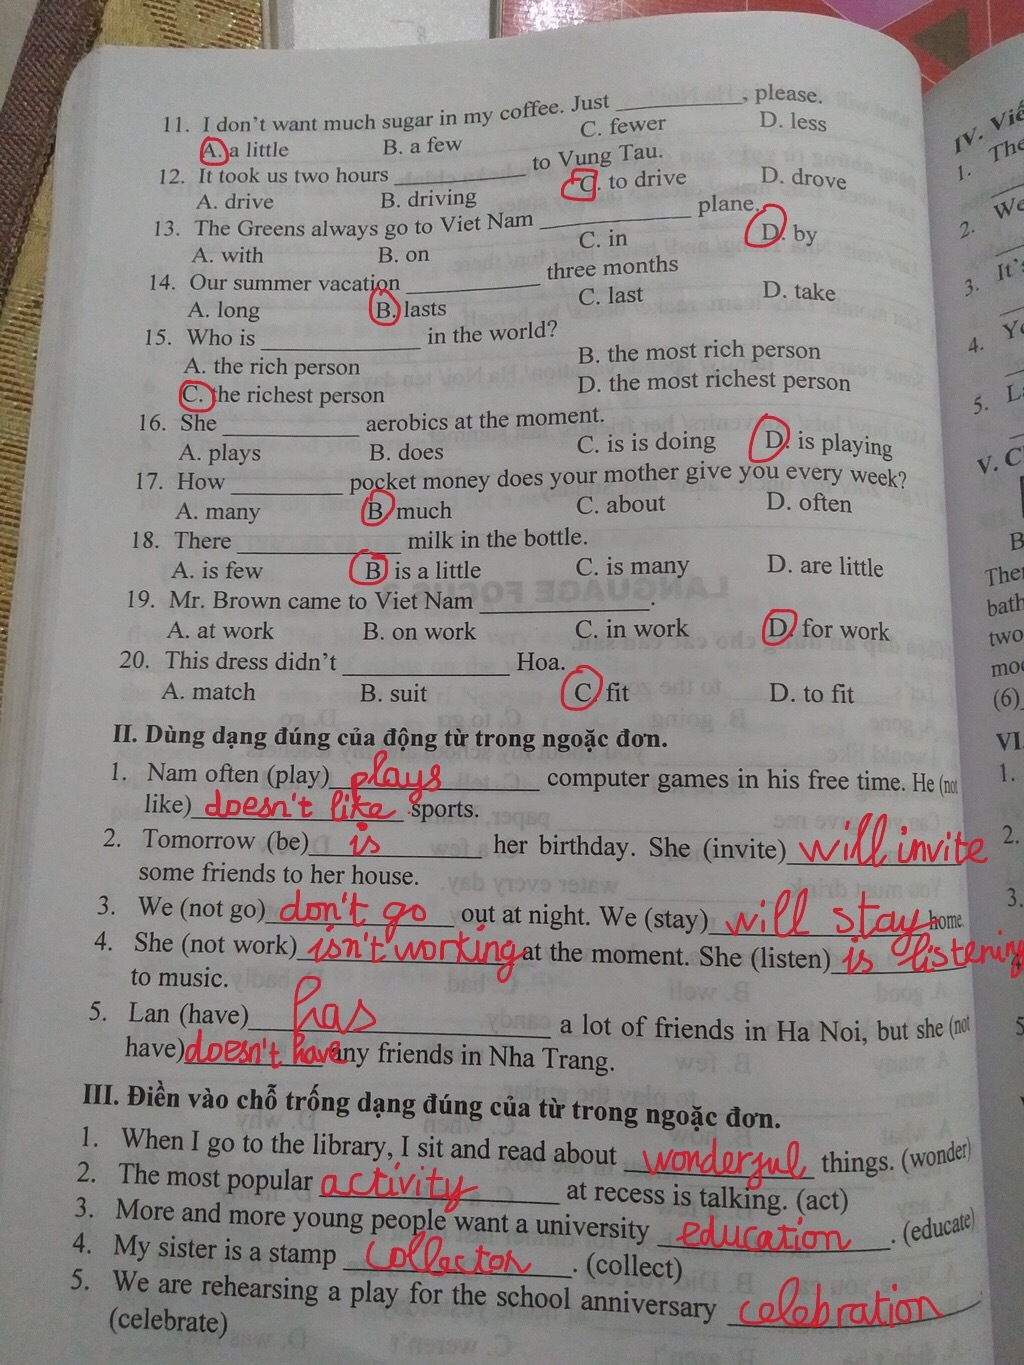 11. I don't want much sugar in my coffee. Just __________, please.
A. a little B. a few C. fewer D. less
12. It took us two hours __________ to Vung Tau.
A. drive B. driving C. to drive D. drove
13. The Greens always go to Viet Nam __________ plane.
A. with B. on C. in D. by
14. Our summer vacation __________ three months
A. long B. lasts C. last D. take
15. Who is __________ in the world?
A. the rich person B. the most rich person
C. the richest person D. the most richest person
16. She __________ aerobics at the moment.
A. plays B. does C. is is doing D. is playing
17. How __________ pocket money does your mother give you every week?
A. many B. much C. about D. often
18. There __________ milk in the bottle.
A. is few B. is a little C. is many D. are little
19. Mr. Brown came to Viet Nam __________.
A. at work B. on work C. in work D. for work
20. This dress didn't __________ Hoa.
A. match B. suit C. fit D. to fit
II. Dùng dạng đúng của động từ trong ngoặc đơn.
1. Nam often (play) plays computer games in his free time. He (not
like) doesn't like sports.
2. Tomorrow (be) is her birthday. She (invite) will invite
some friends to her house.
3. We (not go) don't go out at night. We (stay) will stay home.
4. She (not work) isn't working at the moment. She (listen) is listening
to music.
5. Lan (have) has a lot of friends in Ha Noi, but she (not
have) doesn't have any friends in Nha Trang.
III. Điền vào chỗ trống dạng đúng của từ trong ngoặc đơn.
1. When I go to the library, I sit and read about wonderful things. (wonder)
2. The most popular activity at recess is talking. (act)
3. More and more young people want a university education. (educate)
4. My sister is a stamp collector. (collect)
5. We are rehearsing a play for the school anniversary celebration
(celebrate)
IV. Viế
1. The
2. We
3. It's
4. Yo
5. La
V. C
B
Ther
bath
two
moo
(6)
VI.
1.
2.
3.
5